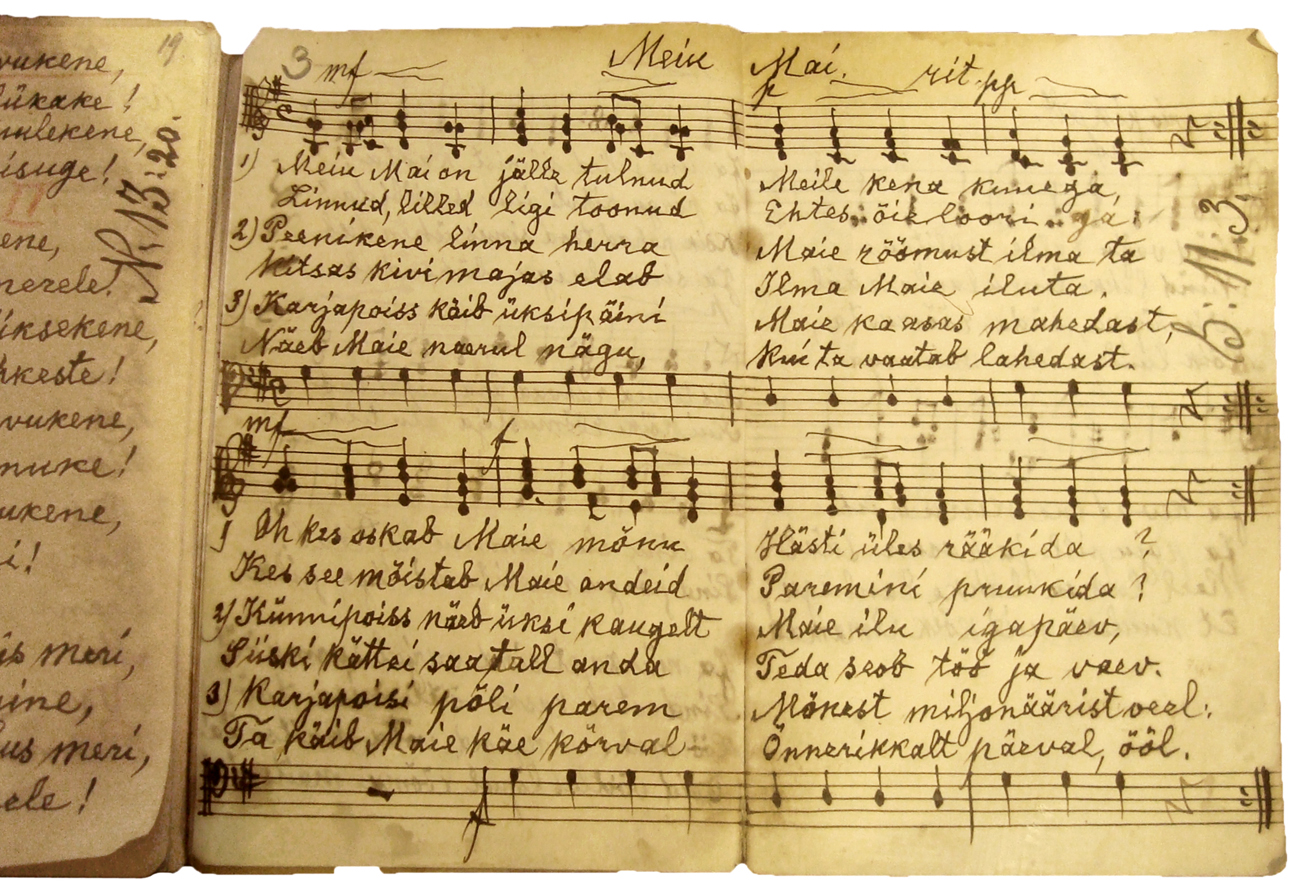 19
vukene,
ükake!
isuge!
II.
ene,
nerele!
iksekene,
hkeste!
vukene,
nuke!
ukene,
i!
is meri,
ine,
us meri,
ele!
Nr 13:20.
3 mf Meiu Mai.
p rit. pp
1) Meiu Mai on jälle tulnud Meile kena kuuega,
Linnud, lilled ligi toonud Ehtes õieloori gá:
2) Peenikene linna herra Maie rõõmust ilma ta
Kitsas kivimajas elab Ilma Maie iluta.
3) Karjapoiss käib üksipäini Maie kaasas mahedast,
Näeb Maie naerul nägu, Kui ta vaatab lahedast.
mf f
1 Oh kes oskab Maie mõnu Hästi üles rääkida ?
Kes see mõistab Maie andeid Paremini pruukida ?
2) Künnipoiss näeb üksi kaugelt Maie ilu igapäev,
Siiski kättei saa tall anda Teda seob töö ja vaev.
3) Karjapoisi põli parem Mõnest miljonäärist veel:
Ta käib Maie käe kõrval Õnnerikkalt päeval, ööl.
f